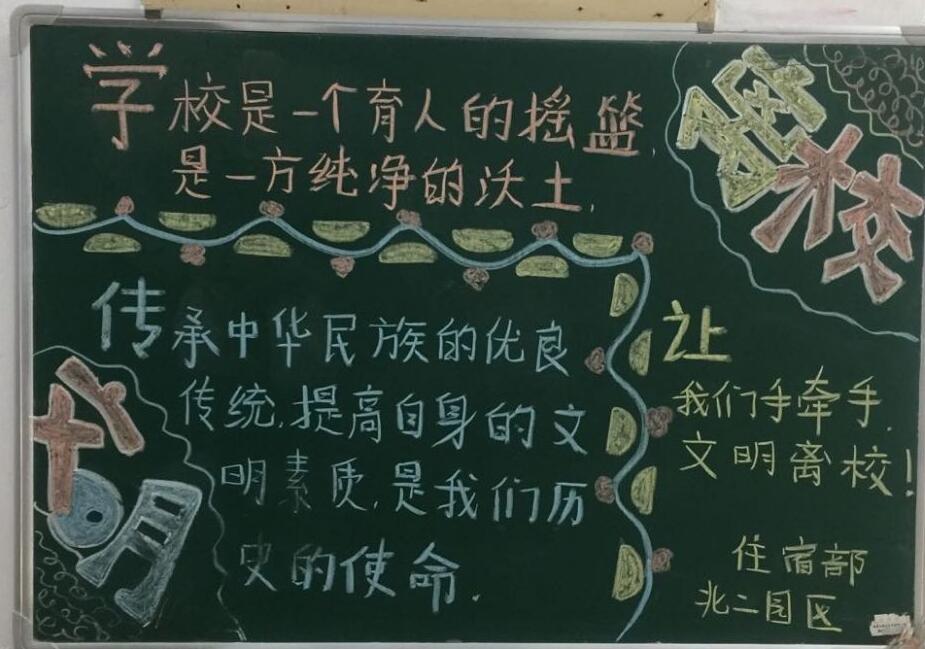 学校是一个育人的摇篮,
是一方纯净的沃土.
离校
传承中华民族的优良
传统,提高自身的文
明素质,是我们历
史的使命.
文明
让
我们手牵手,
文明离校!
住宿部
北二园区